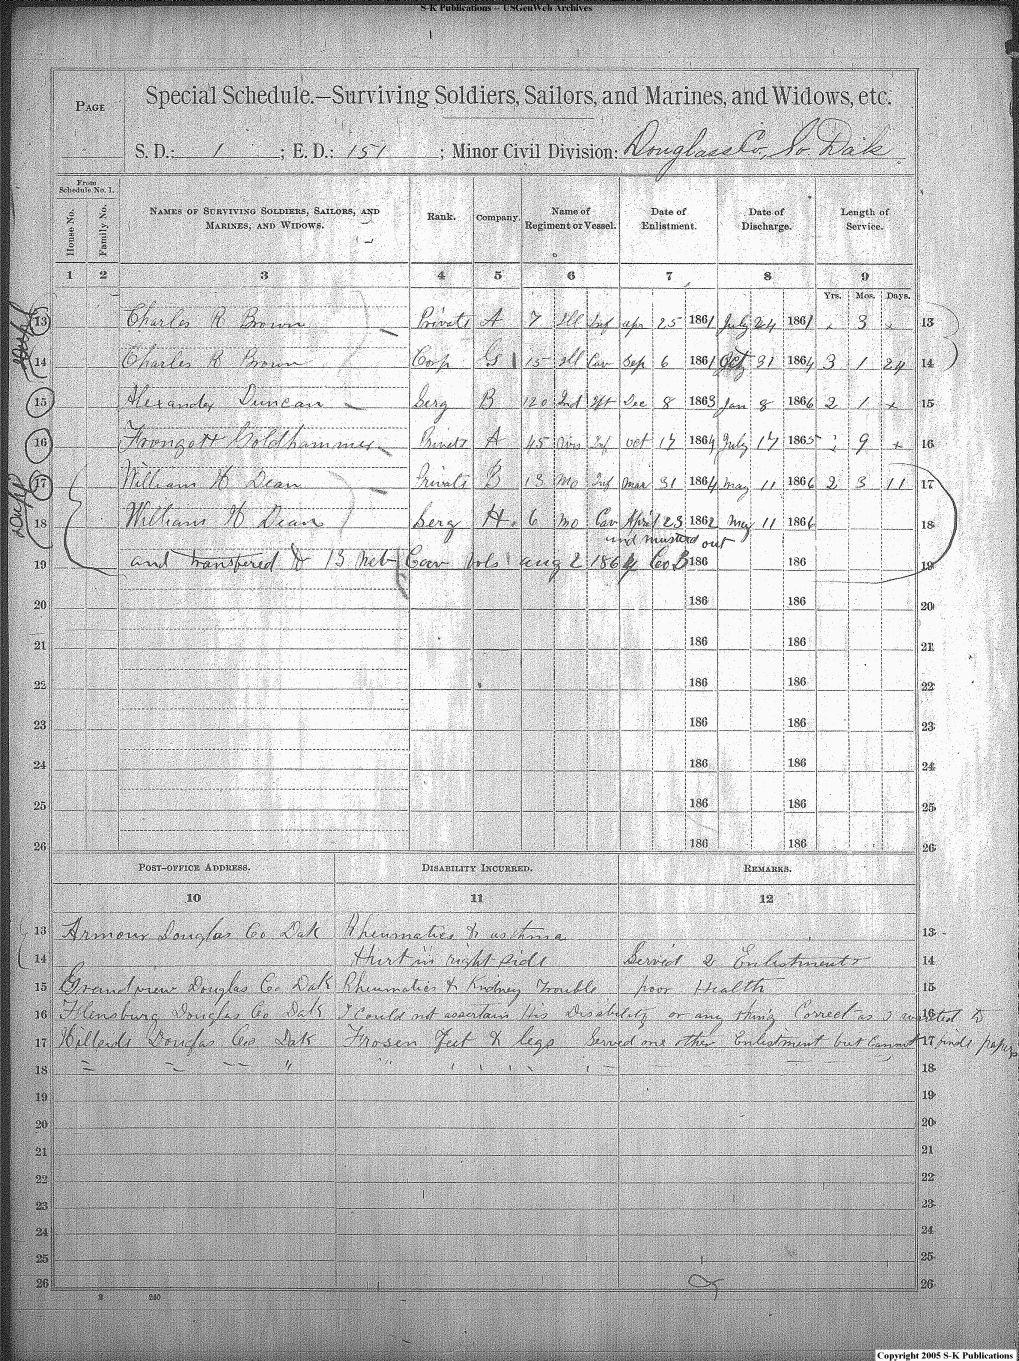 S-K Publications -- USGenWeb Archives
PAGE
Special Schedule.—Surviving Soldiers, Sailors, and Marines, and Widows, etc.
S. D.: 1 ; E. D.: 151 ; Minor Civil Division: Douglass Co., So. Dak
From Schedule No. 1.
House No. Family No. NAMES OF SURVIVING SOLDIERS, SAILORS, AND MARINES, AND WIDOWS. Rank. Company. Name of Regiment or Vessel. Date of Enlistment. Date of Discharge. Length of Service.
1 2 3 4 5 6 7 8 9
Yrs. Mos. Days.
13 Charles R Brown Private A 7 Ill Inf apr 25 1861 July 24 1861 3 13
14 Charles R Brown Corp G 15 Ill Cav Sep 6 1861 Oct 31 1864 3 1 24 14
15 Alexander Duncan Serg B 120 Ind Dec 8 1863 Jan 8 1866 2 1 x 15
16 Goldhammer Private A 45 Wis Inf oct 17 1864 July 17 1865 9 x 16
17 William H Dean Private B 13 Mo Inf mar 31 1864 may 11 1866 2 3 11 17
18 William H Dean Serg H. 6 mo Cav April 23 1862 may 11 1866 18
and musterd out
19 and transfered to 13 Cav Vols aug 2 186 Co B 186 186 19
20 186 186 20
21 186 186 21
22 186 186 22
23 186 186 23
24 186 186 24
25 186 186 25
26 186 186 26
POST-OFFICE ADDRESS. DISABILITY INCURRED. REMARKS.
10 11 12
13 Armour Douglas Co Dak Rheumatics & asthma 13
14 Hurt in right side Served 2 Enlistments 14
15 Grandview Douglas Co Dak Rheumatics & Kidney Trouble poor Health 15
16 Flensburg Douglas Co Dak I Could not assertain His Disability or any thing Correct as I wanted to 16
17 Willards Douglas Co Dak Frosen Feet & legs Served one other Enlistment but Cannot finds papers 17
18 " " 18
19 19
20 20
21 21
22 22
23 23
24 24
25 25
26 26
Copyright 2005 S-K Publications